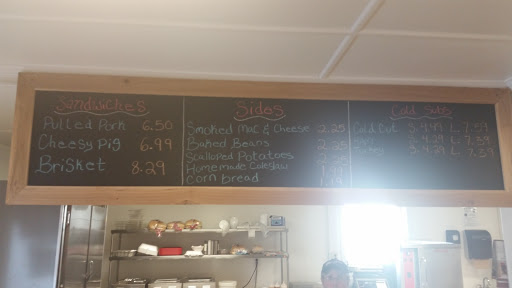 Sandwiches
Pulled Pork 6.50
Cheesy Pig 6.99
Brisket 8.29
Sides
Smoked Mac & Cheese 2.25
Baked Beans 2.25
Scalloped Potatoes
Homemade Coleslaw
Corn bread
Cold Subs
Cold Cut S. 4.99 L. 7.59